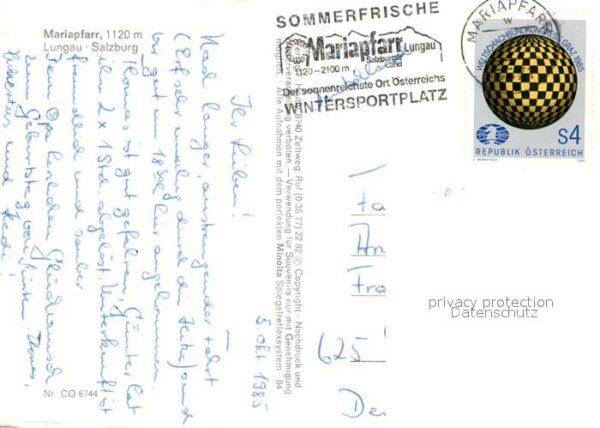 Mariapfarr, 1120 m
Lungau · Salzburg
5. Okt 1985
Ihr Lieben!
Nach langer, anstrengender Fahrt
(Erst sehr neblig durch die Hitze) sind
wir gut um 18 30 hier angekommen.
Thomas ist gut gefahren, Günter hat
ihn 2 x 1 Std abgelöst. Unterkunft ist
freundlich und sauber
Dem Opa herzlichen Glückwunsch
zum Geburtstag von Günter, Thomas,
und Heidi,
Nr. CO 6744
8740 Zeltweg, Ruf (0 35 77) 22 92 © Copyright · Nachdruck und
verboten. — Verwendung für Souvenirs nur mit Genehmigung
Alle Aufnahmen mit dem perfekten Minolta Spiegelreflexsystem · 84
SOMMERFRISCHE
Mariapfarr Lungau
Salzburger Land
1120-2100 m
Der sonnenreichste Ort Österreichs
WINTERSPORTPLATZ
MARIAPFARR
W
WELTSCHACHBUNDKONGRESS GRAZ 1985
S4
REPUBLIK ÖSTERREICH
Fa
Fra
625
De
privacy protection
Datenschutz